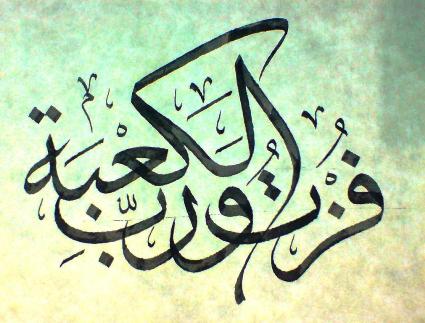 فُزْتُ وَرَبِّ الْكَعْبَة